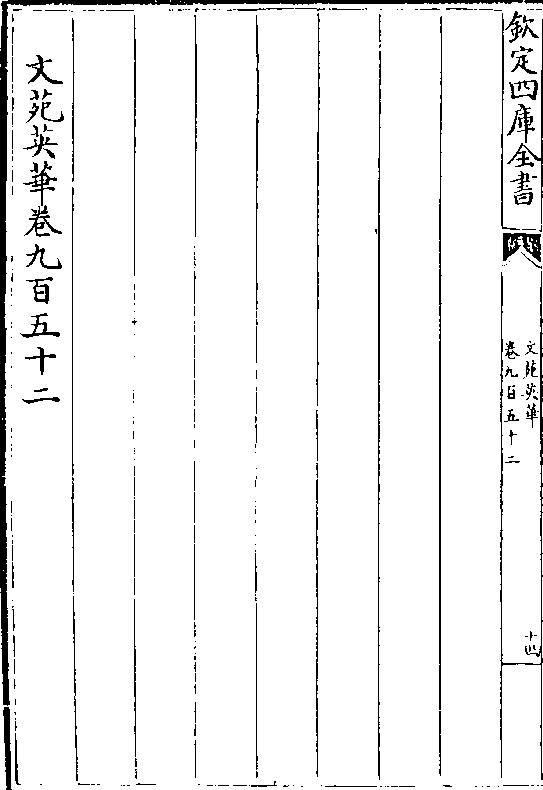 欽定四庫全書
文苑英華
卷九百五十二
十四
文苑英華卷九百五十二